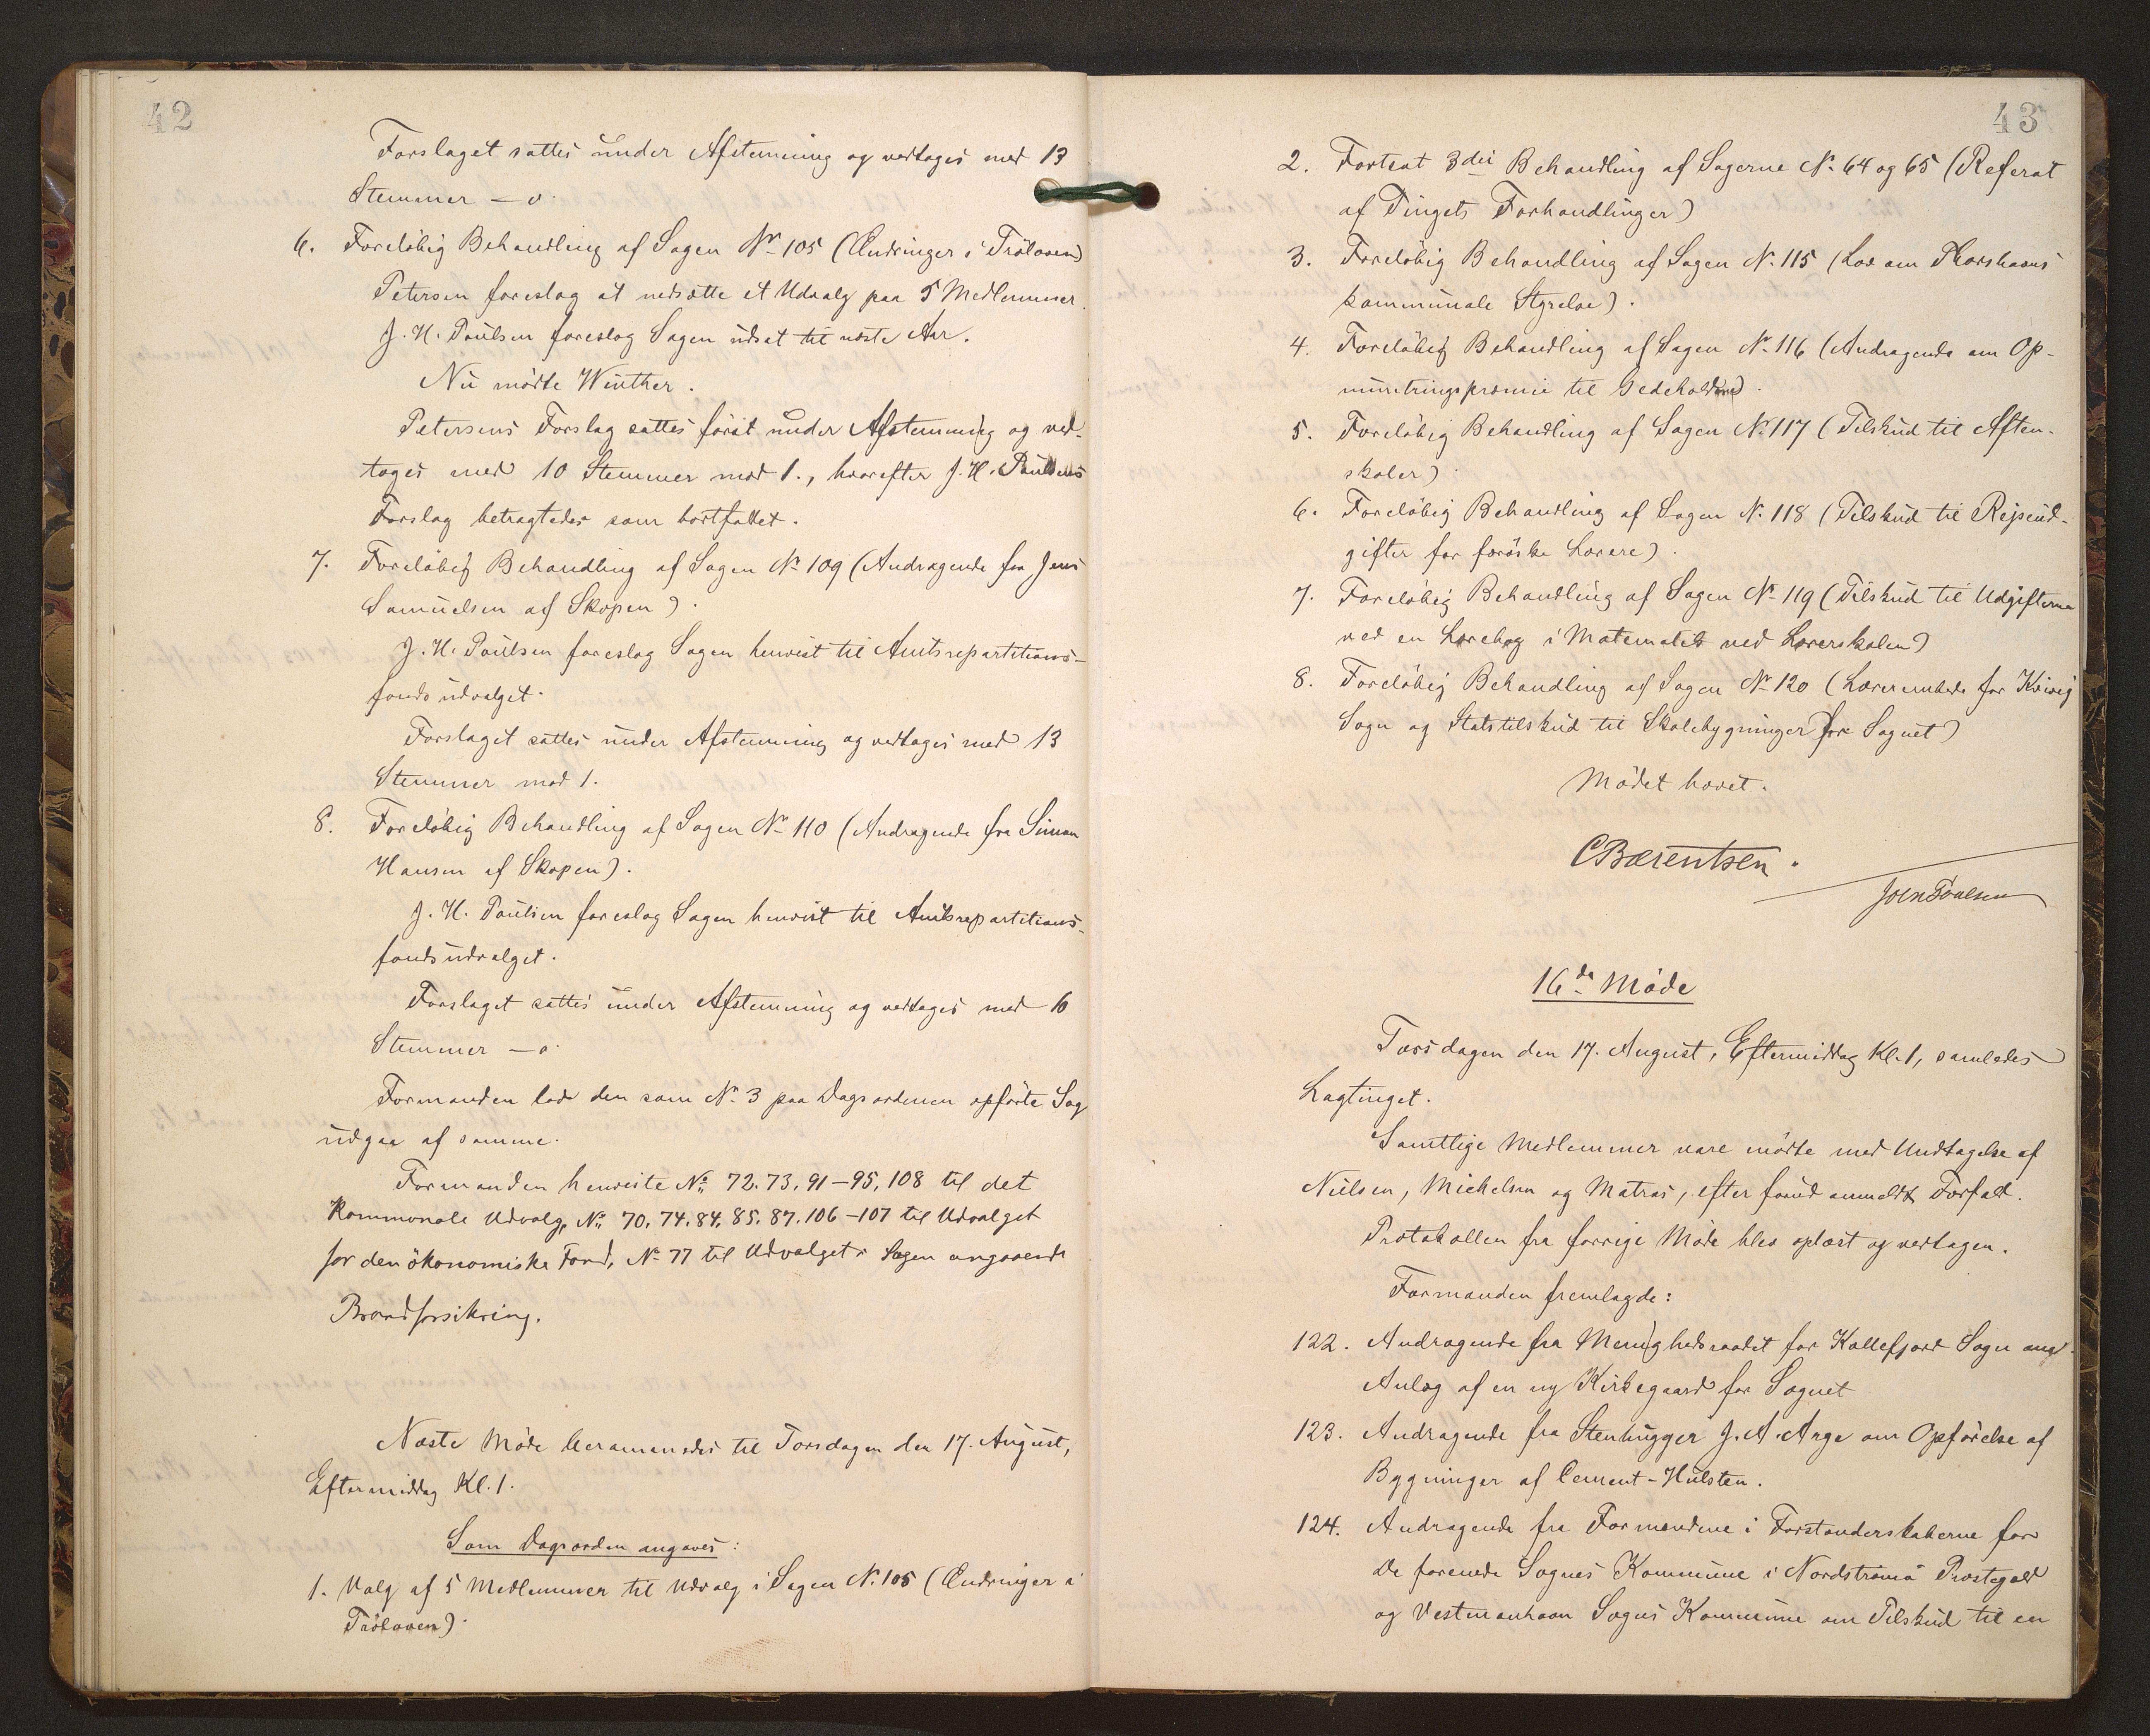 42
Forslaget sattes under Afstemning og vedtoges med 13
Stemmer – 0.
6. Foreløbig Behandling af Sagen Nr 105 (Ændringer i Trøloven)
Petersen foreslog at nedsætte et Udvalg paa 5 Medlemmer.
J. H. Poulsen foreslog Sagen udsat til næste Aar.
Nu mødte Winther.
Petersens Forslag sattes først under Afstemning og ved-
toges med 10 Stemmer mod 1., hvorefter J. H. Poulsens
Forslag betragtedes som bortfaldet.
7. Foreløbig Behandling af Sagen Nr 109 (Andragende fra Jens
Samuelsen af Skopen).
J. H. Poulsen foreslog Sagen henvist til Amtsrepartitions-
fondsudvalget.
Forslaget sattes under Afstemning og vedtoges med 13
Stemmer mod 1.
8. Foreløbig Behandling af Sagen Nr 110 (Andragende fra Simon
Hansen af Skopen).
J. H. Poulsen foreslog Sagen henvist til Amtsrepartitions-
fondsudvalget.
Forslaget sattes under Afstemning og vedtoges med 16
Stemmer – 0.
Formanden lod den som Nr 3 paa Dagsordenen opførte Sag
udgaa af samme.
Formanden henviste No. 72. 73. 91–95. 108 til det
kommunale Udvalg, No. 70. 74. 84. 85. 87. 106–107 til Udvalget
for den økonomiske Fond, No 77 til Udvalget i Sagen angaaende
Brandforsikring.
Næste Møde berammedes til Torsdagen den 17. August,
Eftermiddag Kl. 1.
Som Dagsorden angaves:
1. Valg af 5 Medlemmer til Udvalg i Sagen Nr. 105 (Ændringer i
Trøloven).
43
2. Fortsat 3die Behandling af Sagerne Nr. 64 og 65 (Referat
af Tingets Forhandlinger)
3. Foreløbig Behandling af Sagen Nr. 115 (Lov om Thorshavns
kommunale Styrelse).
4. Foreløbig Behandling af Sagen Nr. 116 (Andragende om Op-
muntringspræmie til Gedehold).
5. Foreløbig Behandling af Sagen Nr. 117 (Tilskud til Aften-
skoler).
6. Foreløbig Behandling af Sagen Nr. 118 (Tilskud til Rejseud-
gifter for færøske Lærere).
7. Foreløbig Behandling af Sagen Nr. 119 (Tilskud til Udgifterne
ved en Lærebog i Matematik ved Lærerskolen)
8. Foreløbig Behandling af Sagen Nr. 120 (Lærerembede for Kvivig
Sogn og Statstilskud til Skolebygninger for Sognet)
Mødet hævet.
CBærentsen.
Joen Poulsen
16de Møde
Torsdagen den 17. August, Eftermiddag Kl. 1, samledes
Lagtinget.
Samtlige Medlemmer vare mødte med Undtagelse af
Nielsen, Michelsen og Matras, efter forud anmeldt Forfald.
Protokollen fra forrige Møde blev oplæst og vedtagen.
Formanden fremlagde:
122. Andragende fra Menighedsraadet for Kollefjord Sogn angd.
Anlæg af en ny Kirkegaard for Sognet
123. Andragende fra Stenhugger J. A. Arge om Opførelse af
Bygninger af Cement-Hulsten.
124. Andragende fra Formændene i Forstanderskaberne for
De forenede Sognes Kommune i Nordstrømø Præstegæld
og Vestmanhavn Sogns Kommune om Tilskud til en